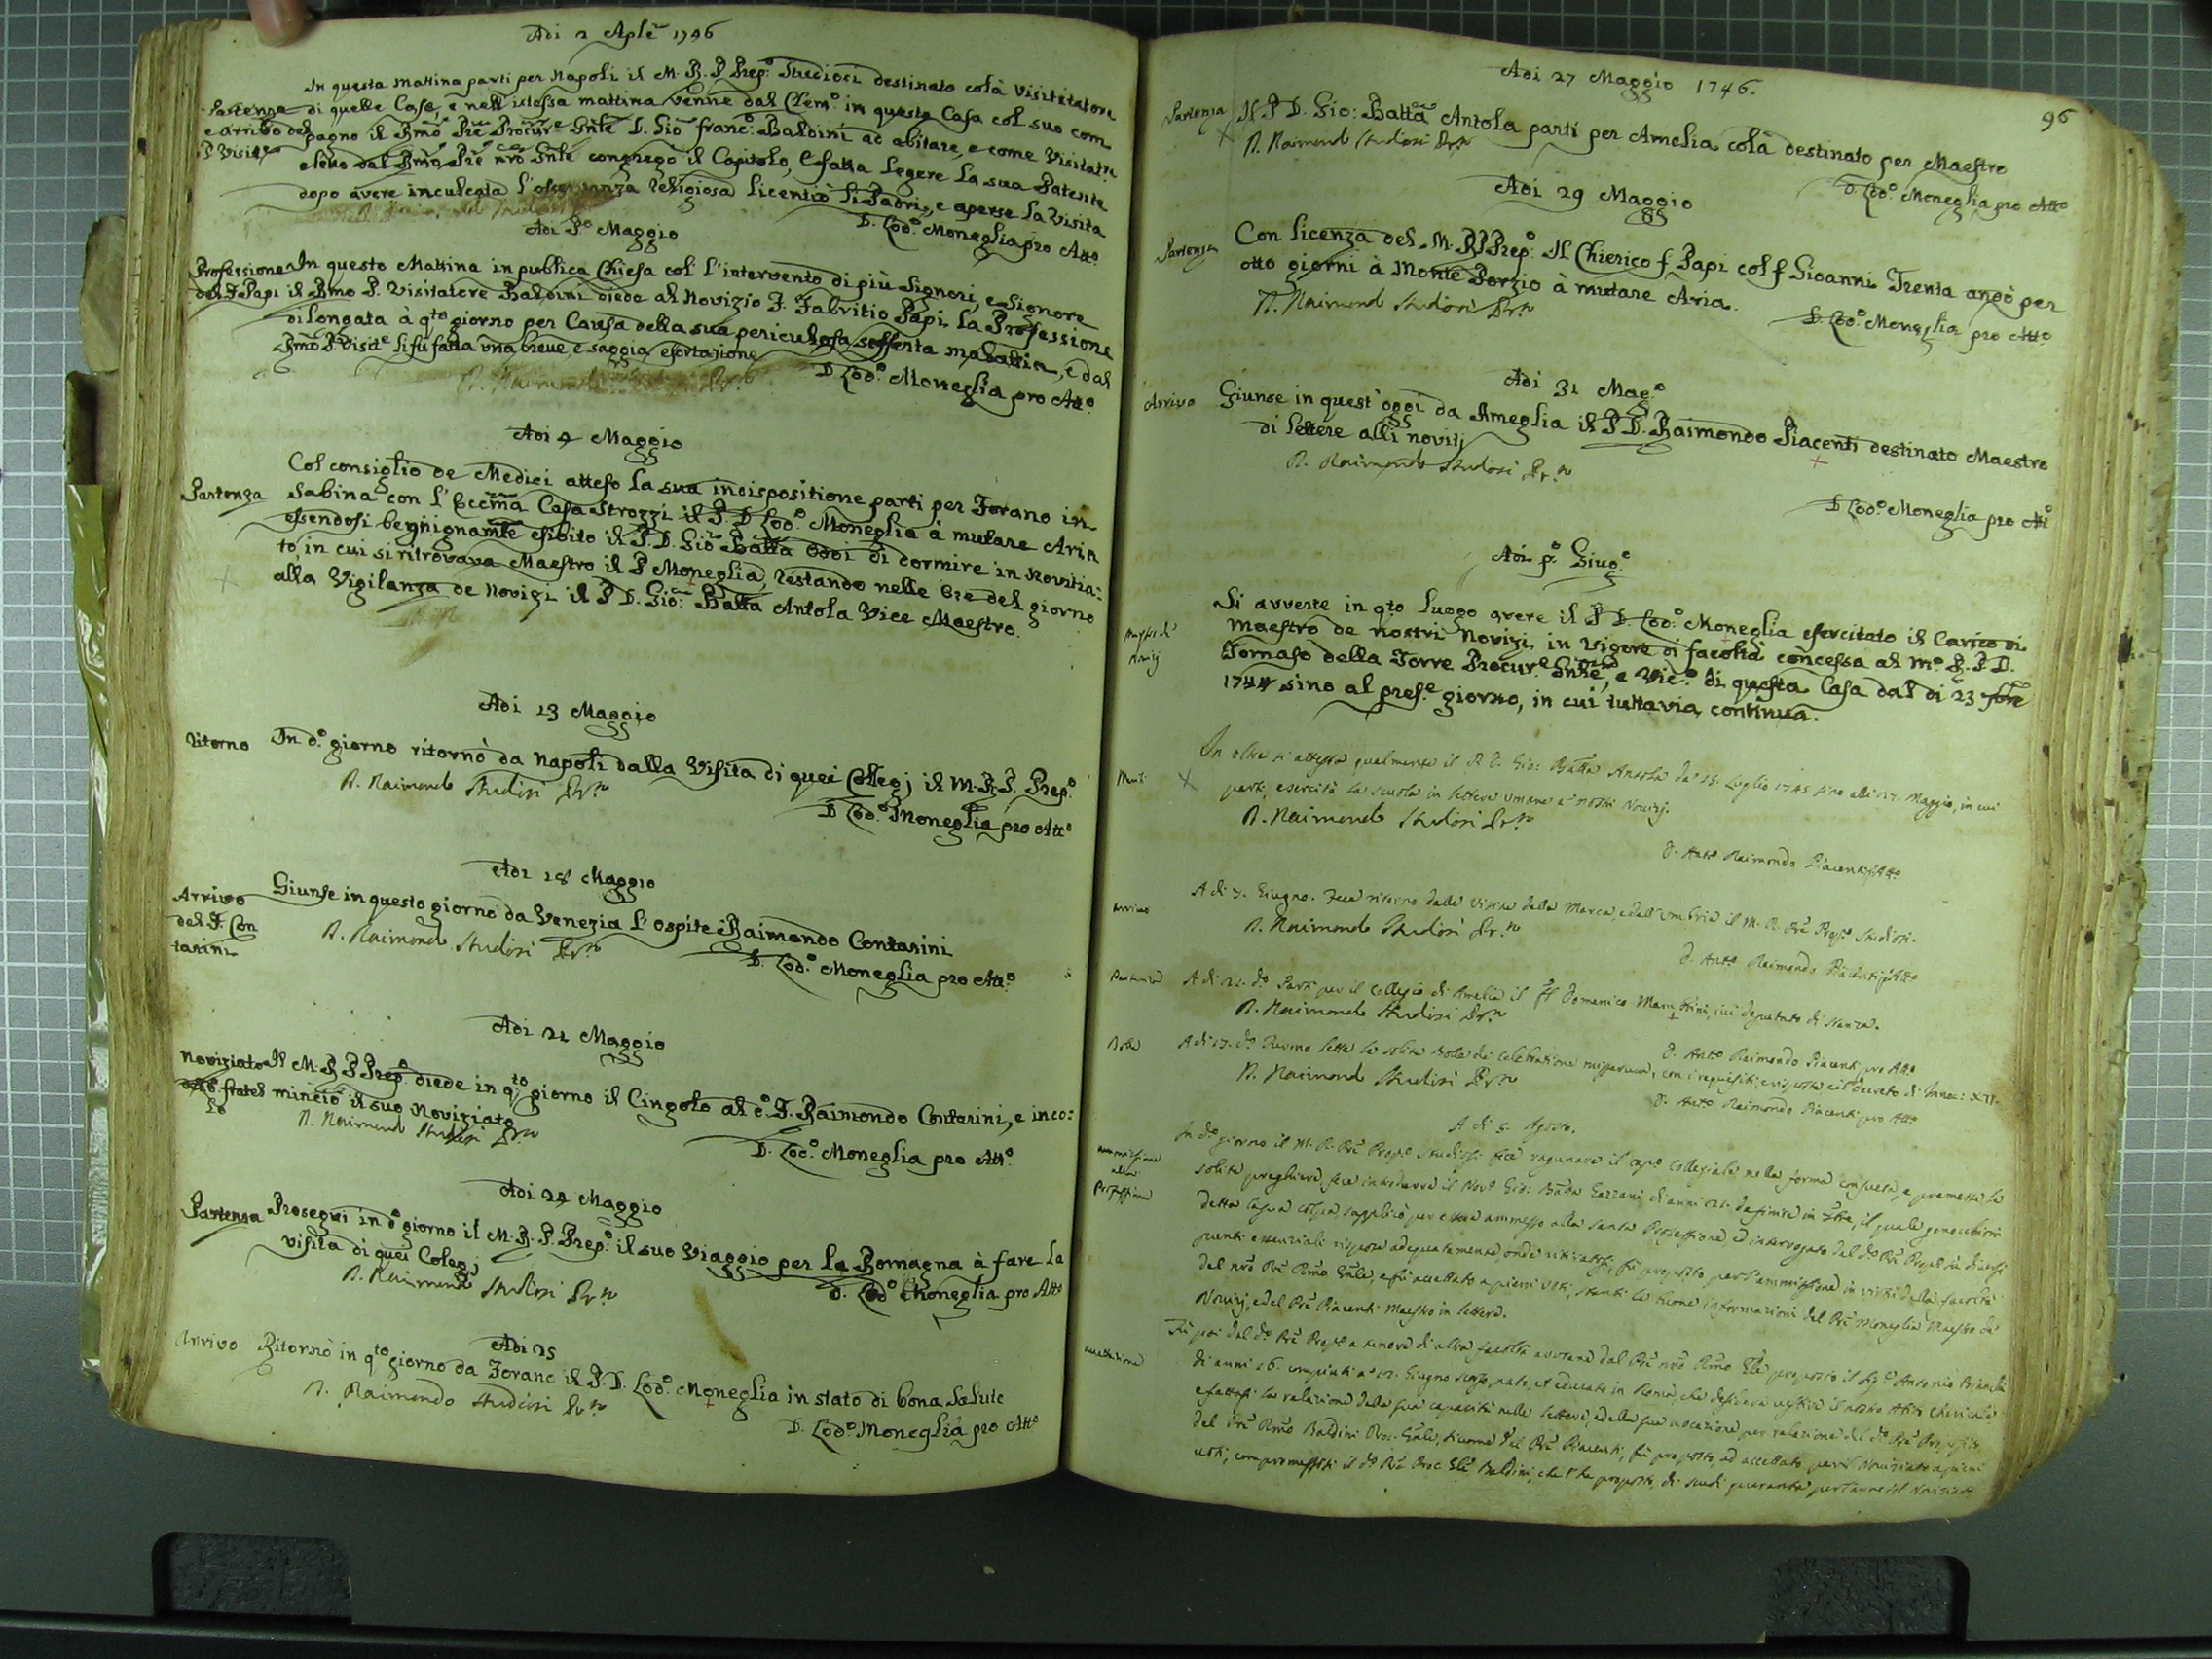 Adi 2 Aplẽ 1746
In questa mattina parti per Napoli il M. R. P. Prep.º Studiosi destinato colà Visititatore
Partenza di quelle Case, e nell'istessa mattina venne dal Clem.º in questa Casa col suo com
e arrivo del pagno il Rmõ Prẽ Procur.e Gnle D. Gio franc.º Baldini ad abitare, e come Visitatre
P Visit.e eletto dal Rmõ Prẽ nrõ Gnle congregò il Capitolo, e fatta legere la sua Patente
dopo avere inculcata l'osservanza religiosa licentiò li Padri, e aperse la Visita
D. Lod.º Moneglia pro Att.º
Adi P.º Maggio
Professione In questa Mattina in publica Chiesa col l'intervento di più Signori, e Signore
del F. Papi il Rmo P. Visitatore Baldini diede al Novizio F. Fabritio Papi la Professione
dilongata à q.to giorno per Causa della sua periculosa sofferta malattia, e dal
Rmo P. Visit.e li fu fatta una breue e saggia esortazione
D Lod.º Moneglia pro Att.º
Adi 4 Maggio
Col consiglio de Medici atteso la sua indispositione parti per Forano in
Partenza Sabina con l'Eccma Casa Strozzi il P. D Lod.º Moneglia à mutare Aria
essendosi benignamte esibito il P. D. Gio Batta Oddi di dormire in Novitia:
to, in cui si ritrovava Maestro il P Moneglia, restando nelle Ore del giorno
alla Vigilanza de Novizi il P D. Gio: Batta Antola Vice Maestro.
Adi 13 Maggio
Ritorno In d.º giorno ritornò da Napoli dalla Visita di quei Collegj il M. R. P. Prep.º
R. Raimondo Studiosi Pr.to
D Lod.º Moneglia pro Att.º
Adi 18 Maggio
Arrivo Giunse in questo giorno da Venezia l'ospite Raimondo Contarini
del F. Con
tarini
R. Raimondo Studiosi Pr.to
D. Lod.º Moneglia pro Att.º
Adi 21 Maggio
Noviziato Il M. R P Prep.º diede in q.to giorno il Cingolo al d.º F. Raimondo Contarini, e inco:
fratel minciò il suo noviziato
lo
R. Raimondo Studiosi Pr.to
D. Lod.º Moneglia pro Att.º
Adi 24 Maggio
Partenza Prosegui in d.º giorno il M. R. P. Prep.º il suo Viaggio per la Romagna à fare la
visita di quei Colegj
R. Raimondo Studiosi Pr.to
D. Lod.º Moneglia pro Att.º
Adi 25
Arrivo Ritornò in q.to giorno da Forano il P. D. Lod.º Moneglia in stato di bona Salute
R. Raimondo Studiosi Pr.to
D. Lod.º Moneglia pro Att.º
96
Adi 27 Maggio 1746.
Partenza Il P D. Gio: Batta Antola parti per Amelia colà destinato per Maestro
R. Raimondo Studiosi Pr.to
D. Lod.º Moneglia pro Att.º
Adi 29 Maggio
Partenza Con licenza del M. R P Prep.º Il Chierico f. Papi col f Gioanni Trenta andò per
otto giorni à Monte Porzio à mutare Aria.
R. Raimondo Studiosi Pr.to
D. Lod.º Moneglia pro Att.º
Adi 31 Mag.º
Arrivo Giunse in quest'oggi da Ameglia il P D. Raimondo Piacenti destinato Maestro
di lettere alli novitj
R. Raimondo Studiosi Pr.to
D Lod.º Moneglia pro Att.º
Adi p.º Giug.º
Si avverte in qto luogo avere il P D. Lod.º Moneglia esercitato il Carico di
Maestro de nostri Novizi in vigore di facoltà concessa al M.º R. P D.
Tomaso della Torre Procur.e Gnle, e Vic.º di questa Casa dal di 23
1744 sino al pres.e giorno, in cui tuttavia continua.
In oltre si attesta qualmente il P. D. Gio: Batta Antola da' 15. Luglio 1745 sino alli 27. Maggio, in cui
partì, esercitò la scuola in lettere umane a' nostri Novizj.
R. Raimondo Studiosi Pr.to
D. Ant.º Raimondo Piacenti p Att.º
Arrivo A di 7. Giugno. Fece ritorno dalla Visita della Marca, e dell'Umbria il M. R. Prẽ Prep.º Studiosi.
R. Raimondo Studiosi Pr.to
D. Ant.º Raimondo Piacenti p Att.º
Partenza A di 12. d.º Partì per il Collegio di Amelia il Domenico, ivi deputato di stanza.
R. Raimondo Studiosi Pr.to
D. Ant.º Raimondo Piacenti pro Att.º
Bolle A di 17. d.º Furono lette le solite Bolle de Celebratione missarum, con i requisiti, e risposte, e il Decreto di Innoc: XII.
R. Raimondo Studiosi Pr.to
D. Ant.º Raimondo Piacenti pro Att.º
A di 5. Agosto.
In d.º giorno il M. R. Prẽ Prep.º Studiosi fece ragunare il cap.º Collegiale nella forma consueta, e premesse le
ammissione solite preghiere, fece introdurre il Nov.º Gio: Batta di anni 21. da finire in, il quale genocchioni
alla
Professione detta la sua colpa, supplicò per essere ammesso alla santa Professione, ed interrogato dal d.º Prẽ Prep.º in diversi
punti essenziali rispose adequatamente, onde ritiratosi, fù proposto per l'ammissione in virtù della facoltà
del nrõ Prẽ Rmo Gnle, e fù accettato a pieni voti, stanti le buone informazioni del Prẽ Moneglia Maestro de'
Novizj, e del Prẽ Piacenti Maestro in lettere.
Fù poi dal d.º Prẽ Prep.º a tenore di altra facoltà avutane dal Prẽ nrõ Rmo Gnle proposto il Sig.r Antonio Bianchi
accettazione di anni 16. compiuti a' 12. Giugno scorso, nato, et educato in Roma, che desidera vestire il nostro Abito Chericale
e fattasi la relazione della sua capacità nelle lettere, e della sua vocazione per relazione del d.º Prẽ Preposito,
del Prẽ Rmo Baldini Proc. Gnle, sicome del Prẽ Piacenti, fù proposto, ed accettato per il Noviziato a pieni
voti, compromessosi il d.º Prẽ Proc. Gnle Baldini, che l'ha proposto, di scudi quaranta per l'anno del Noviziato